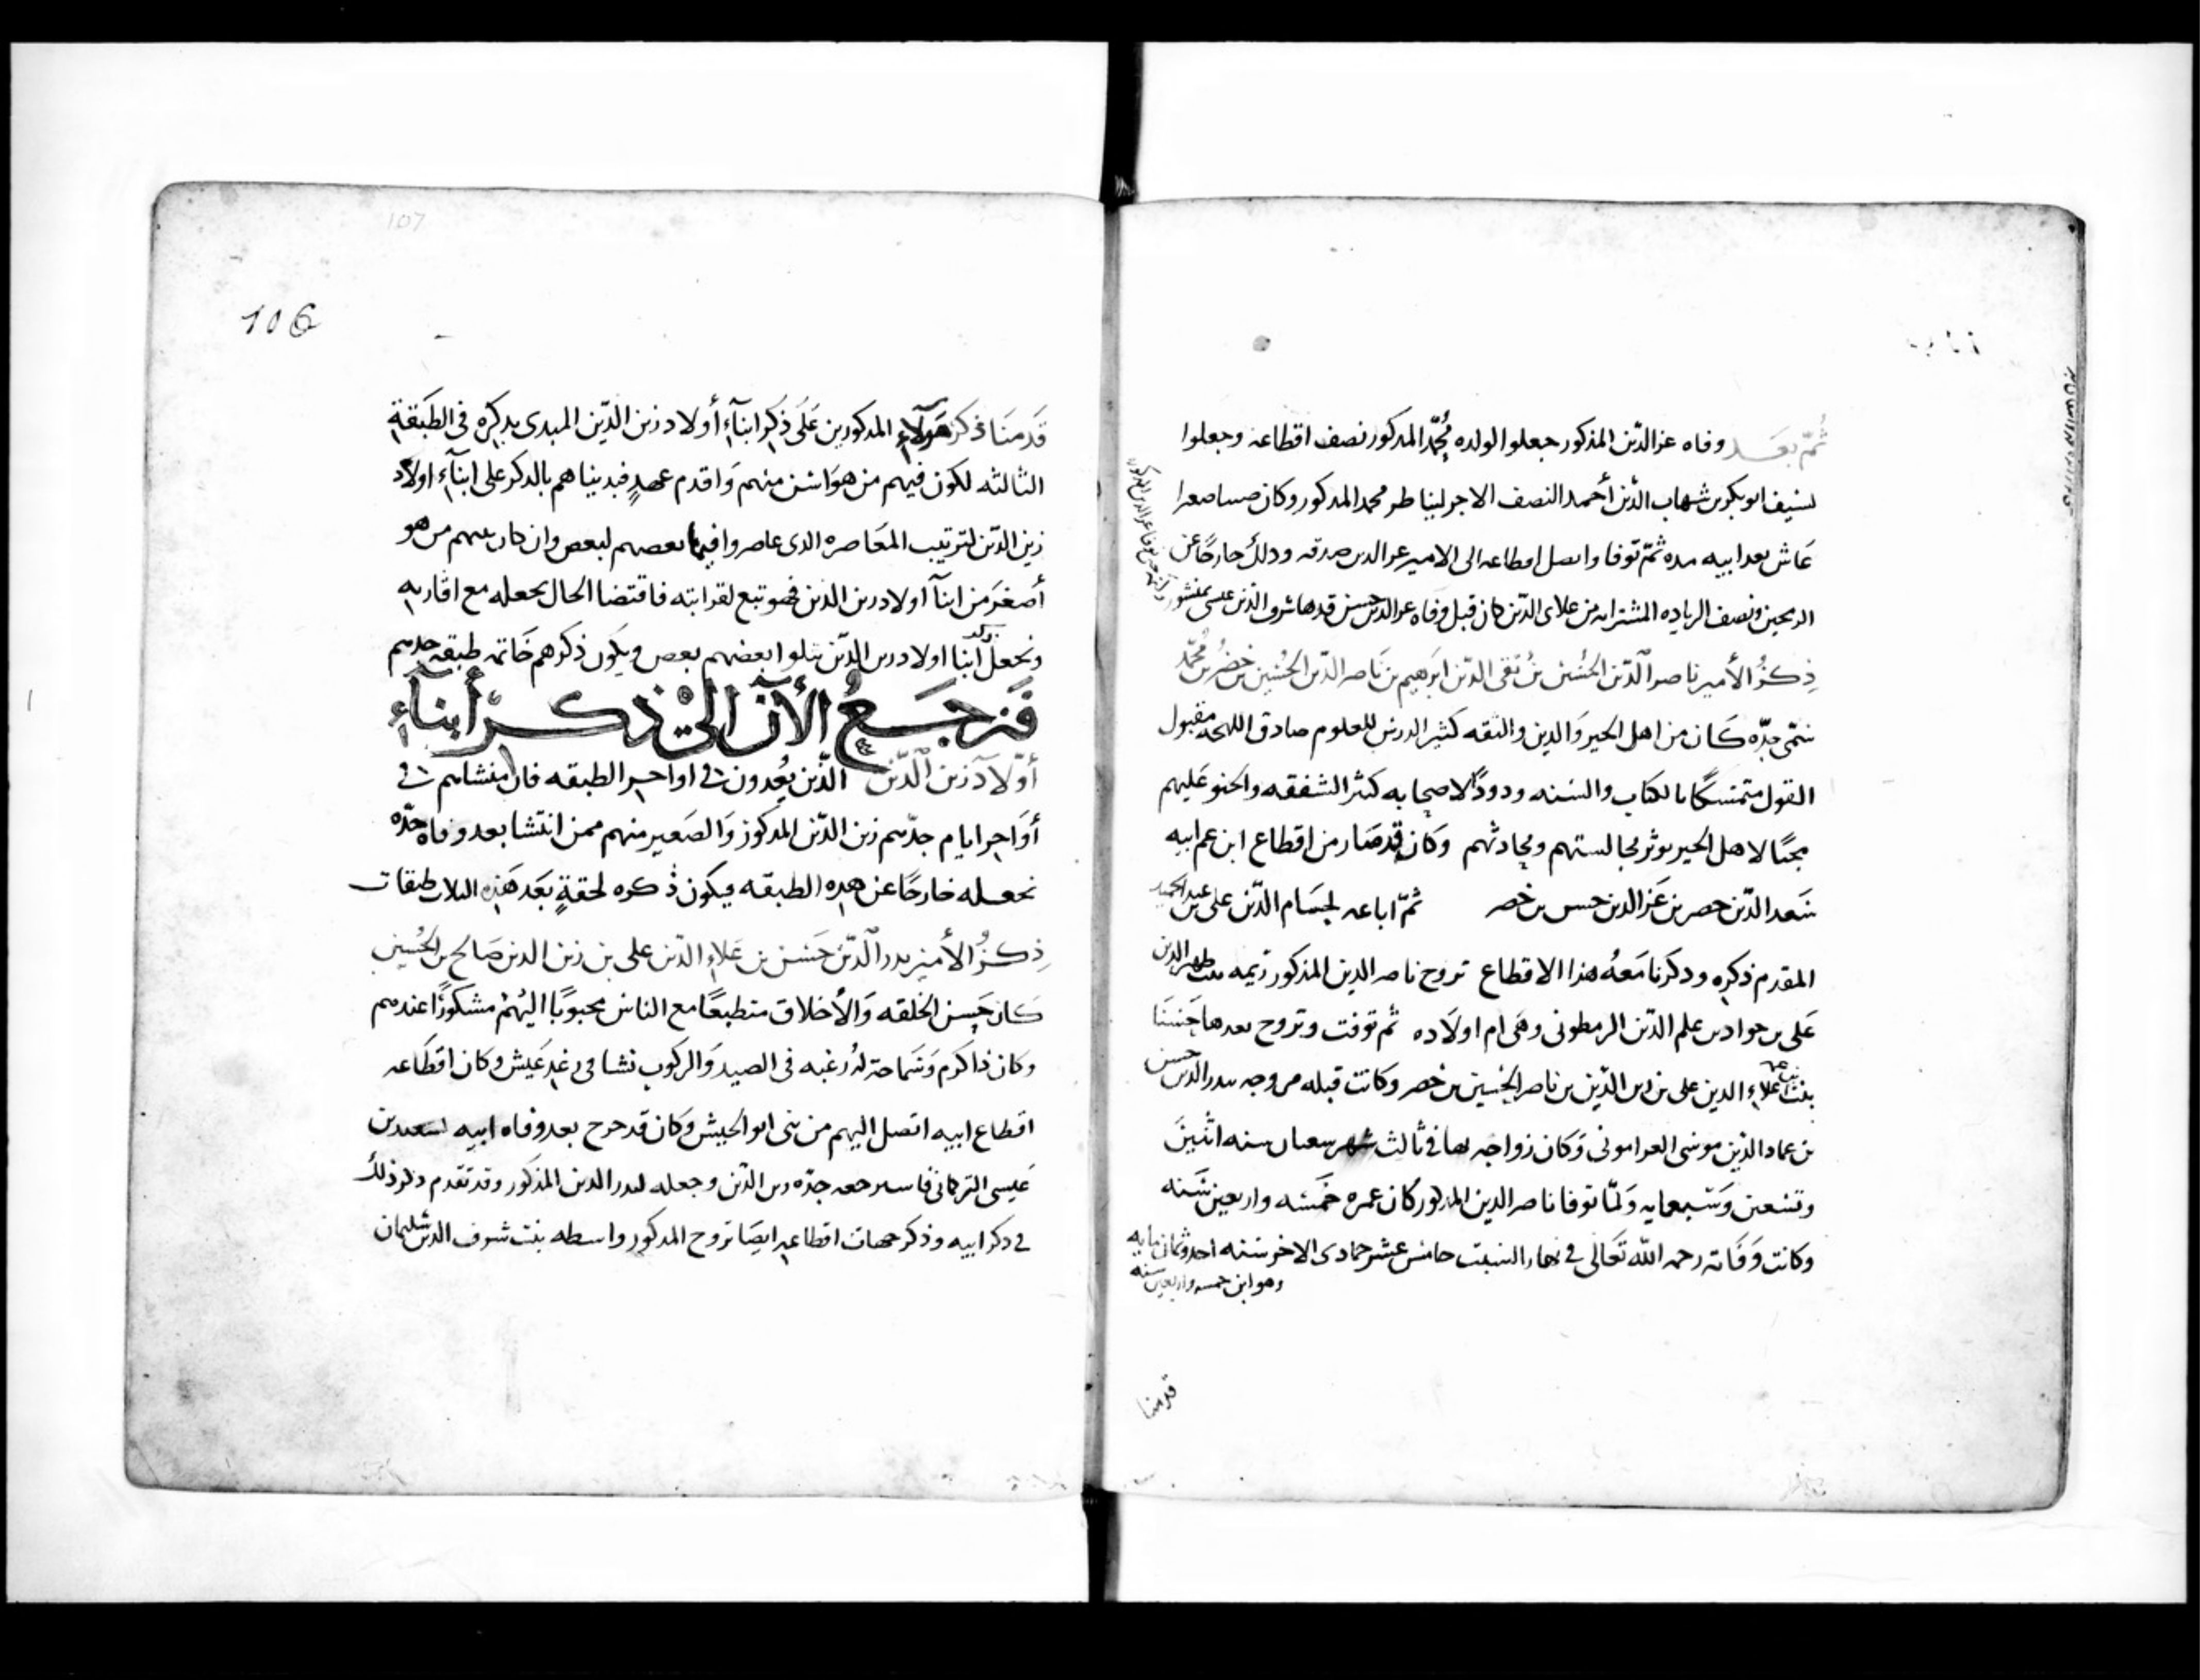 ثُمّ بعَـــد وفاه عز الدّين المذكور جعلوا لولده مُحمّد المذكور نصف اقطاعه وجعلوا
لسيف ابو بكر بن شهاب الدّين أحمد النصف الاخر ليناطر محمد المذكور وكان صبيا صغيرا
عَاش بعد ابيه مده ثمّ توفا واتصل اقطاعه الى الامير عز الدين صدقه وذلك خارجًا عن
ونصف الزياده المشتراه من علاى الدّين كان قبل وفاه عز الدين حسين قدها شرف الدّين عيسى بمنشور
ذِكرُ الأمير ناصر الدّين الحُسَين بن تقى الدّين ابرَهيم بن نَاصر الدّين الحُسَين بن خضر بن مُحمَّد
سُمّى جدّه كَان من اهل الخير وَالدين والثقه كثير الدرس للعلوم صادق اللهجه مقبول
القول متمسكًا بالكتاب والسُنه ودودًا لاصحابه كثير الشفقه والحنو عَليهم
محبًا لاهل الخير يوثر مجالستهم ومحادثهم وكان قد صَار من اقطاع ابن عم ابيه
سَعد الدّين خضر بن عَز الدين حسن بن خضر ثمّ اباعه لحسَام الدّين على بن عبد الحميد
المقدم ذكره وذكرنا مَعهُ هذا الاقطاع تزوج ناصر الدين المذكور بنت ظهير الدين
عَلى بن جواد بن علم الدّين الرمطونى وهَى ام اولاده ثم توفت وتزوج بعدها حَسَنَا
بنت عمه علاءِ الدين على بن زين الدّين بن ناصر الحُسَين بن خضر وكانت قبله مزوجه ببدر الدين حسن
بن عماد الدّين موسى العرامونى وَكان زواجه بها فى ثالث شهر شعبان سنه اثنين
وتسعين وَسَبعمايه وَلمّا توفا ناصر الدين المذكور كان عمره خمَسَه واربعين سَنه
وكانت وَفَاته رحمه الله تَعَالى فى نهار السَبت خامس عشر جمادى الاخر سَنه احد وثمان مايه
وهو ابن خمسه واربعين سنه
قدمنا
106
107
قَدمنَا ذكر هَولآءِ المذكورين عَلَى ذكر ابنآءِ أولاد زين الدّين المبدى بذكره فى الطَبقة
الثالثه لكون فيهم من هوَ اسَن منهم وَاقدم عهدٍ فبديناهم بالذكر على ابنآءِ اولاد
زين الدّين لترتيب المعَاصره الذى عاصروا فيها بعضهم لبعص وان كان منهم من هو
أصغرَ من ابنآ اولاد زين الدّين فهو تبع لقرابته فاقتضا الحال بجعله مع اقاربه
ونجعل ابنا اولاد زين الدّين يتلوا بعضهم بعص ويكون ذكرهم خَاتمه طبقه جدهم
فَنرجَــعُ الأن الىْ ذكــر أبنآءِ
أولاد زين الدّين الذّين يعُدون فى اواخر الطبقه فان منشاهم فى
أوَاخر ايام جدّهم زين الدّين المذكور وَالصَغير منهم ممن انتشا بعد وفاه جدّه
نجعـله خارجًا عن هذه الطبقه ويكون ذكره لحقةٍ بَعد هَذِه الثلاث طبقات
ذِكرُ الأمير بدر الدّين حَسَن بن عَلاءِ الدّين على بن زين الدين صَالح بن الحُسَين
كَان حَسن الخلقه وَالأخلاق متطبعًا مع الناس محبوبًا اليُهمْ مشكورًا عندهم
وكان ذا كرم وَسَماحة لهُ رغبه فى الصيد وَالركوب نشا فى رغد عَيش وكان اقطَاعه
اقطاع ابيه اتصل اليهم من بنى ابو الجيش وَكان قد خرج بعد وفاه ابيه لسعيد بن
عَيسى التركمانى فاسترجعه جدّه زين الدّين وجعله لبدر الدين المذكور وقد تقدم ذكر ذلك
فى ذكر ابيه وذكر جهات اقطاعه ايضَا تزوج المذكور واسطه بنت شرف الدين سُليمان